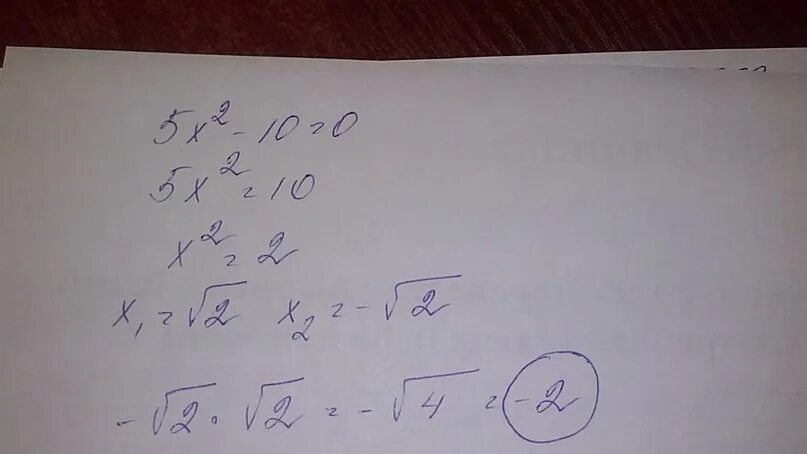 5x² - 10 = 0
5x² = 10
x² = 2
x₁ = √2 x₂ = -√2
-√2 · √2 = -√4 = -2